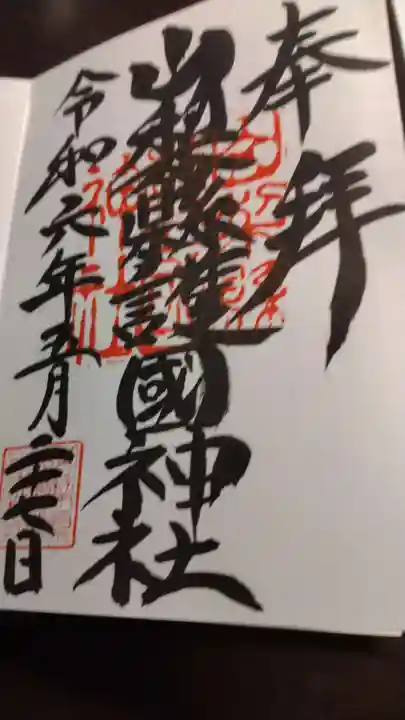 奉拝
山梨縣護國神社
令和六年五月二十七日